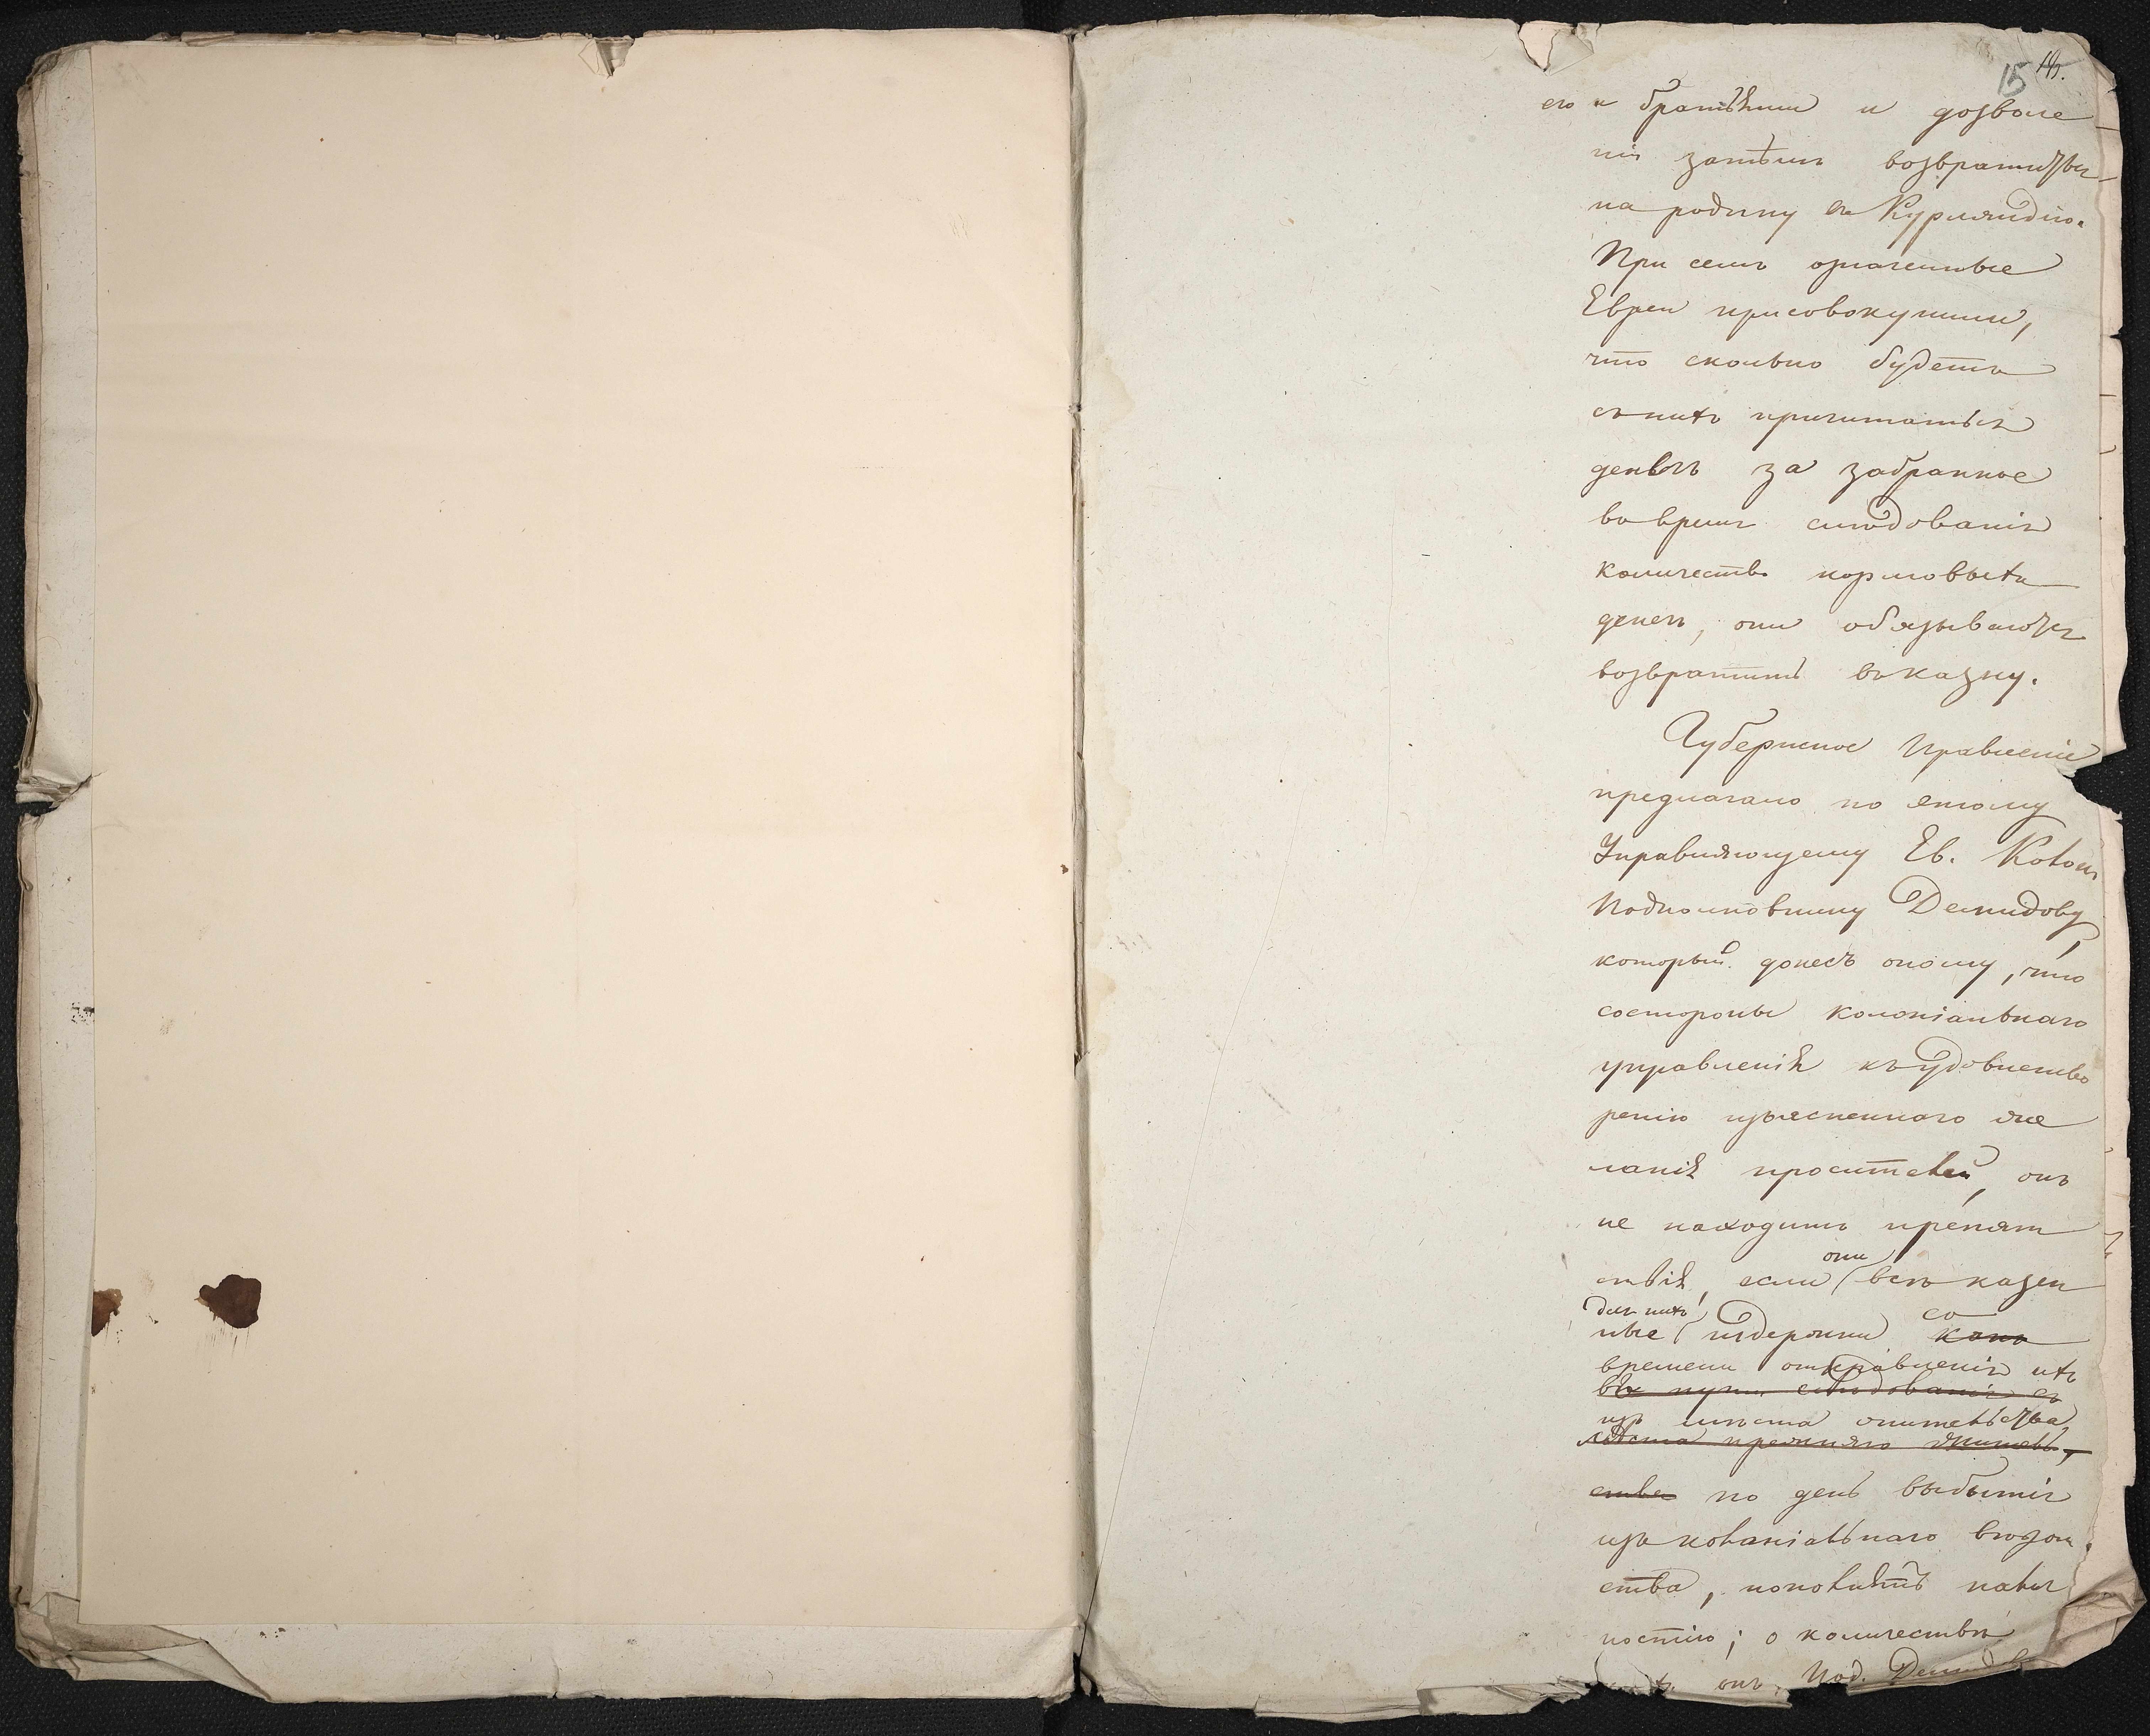 15 18.
его и братьями и дозволе
нія затѣмъ возвратиться
на родину въ Курляндію.
При семъ означенные
Евреи присовокупили,
что сколько будетъ
съ нихъ причитаться
денегъ за забранное
во время слѣдованія
количество кормовыхъ
денегъ, они обязываются
возвратить въ казну.
Губернское Правленіе
предлагало по этому
Управляющему Ев. Колон.
Подполковнику Демидову,
который донесъ оному, что
со стороны колоніальнаго
управленія къ удовлетво
ренію изъясненнаго же
ланія просителей, онъ
не находитъ препят
ствія, если они всѣ казен
для нихъ
ные издержки со какъ
времени отправленія ихъ
въ пути слѣдованія съ
изъ мѣста жительства
мѣста прежняго житель,
ства по день выбытія
изъ колоніальнаго вѣдом
ства, пополнятъ налич
ностію; о количествѣ
онъ, Под. Демидов